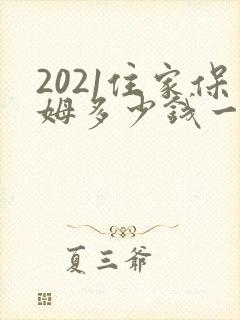 2021住家保
姆多少钱一
夏三爷